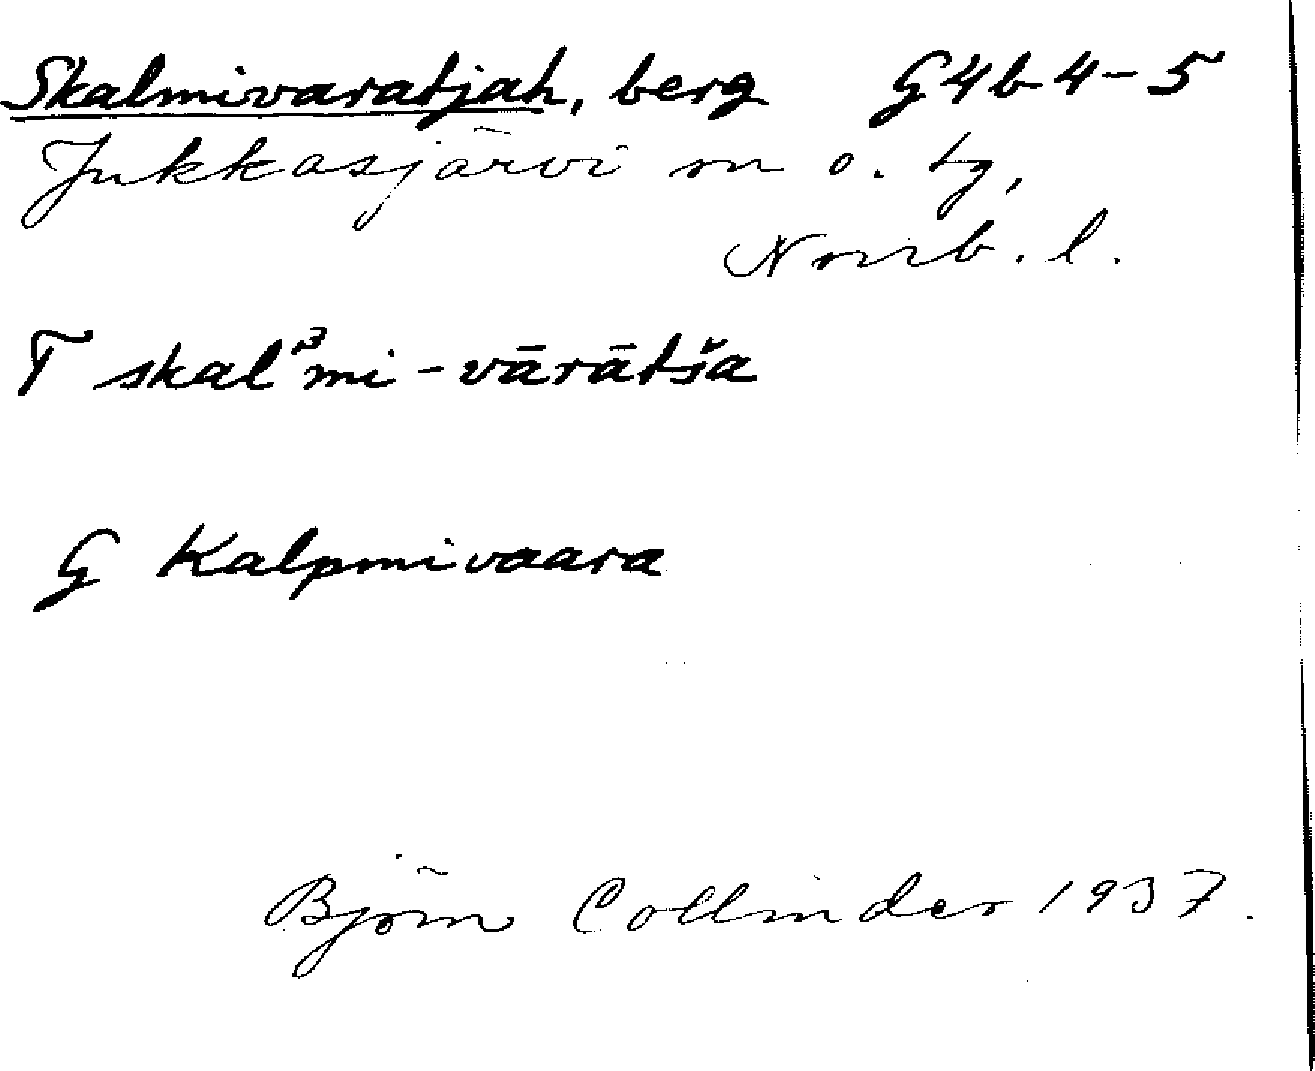 Skalmivaratjah, berg G4b4-5
Jukkasjärvi sn o. tg,
Norrb. l.
T skalᵊmi-vārātša
G Kalpmivaara
Björn Collinder 1937.